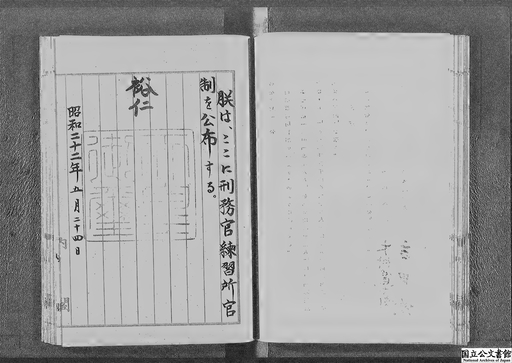 朕は、ここに刑務官練習所官
制を公布する。
裕仁
昭和二十二年五月二十四日
国立公文書館
National Archives of Japan